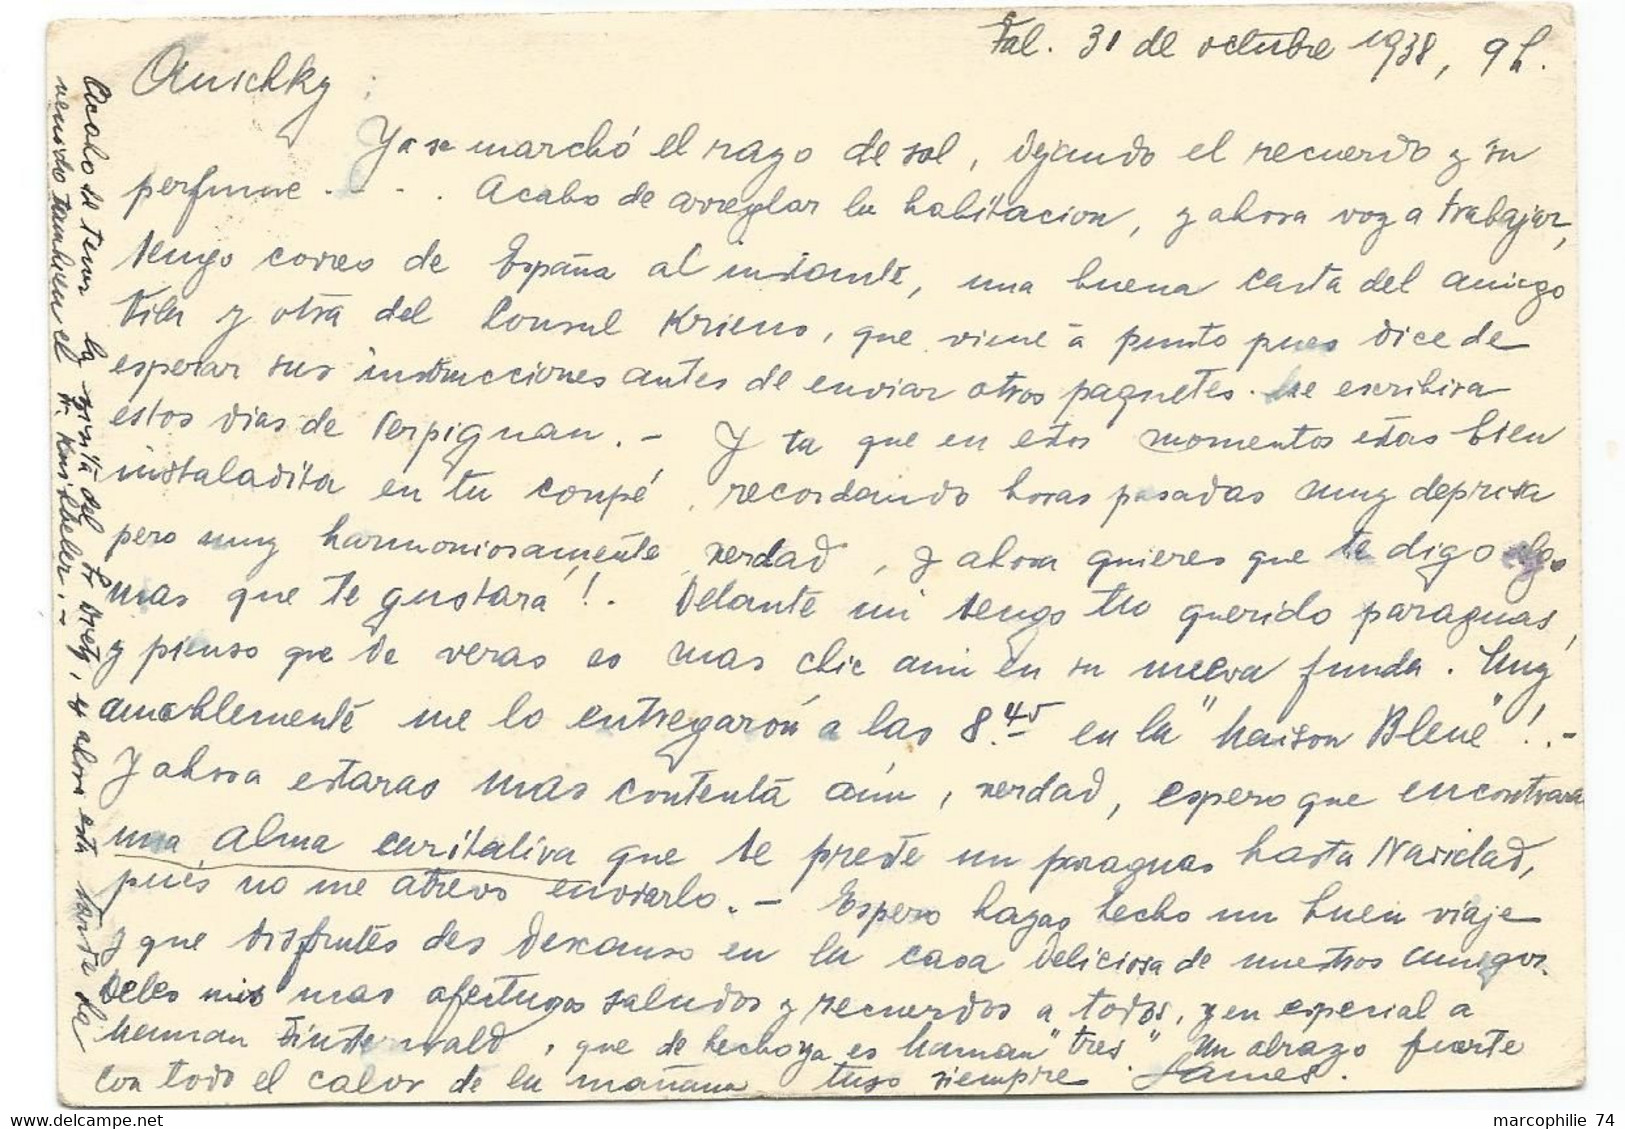 Fal. 31 de octubre 1938, 9 h.
Anichky :
Ya se marchó el rayo de sol, dejando el recuerdo y su
perfume - - - . Acabo de arreglar la habitacion, y ahora voy a trabajar,
tengo correo de España al instante, una buena carta del amigo
y otra del Consul Krieno, que viene á punto pues dice de
esperar sus instrucciones antes de enviar otros paquetes. Me escribira
estos dias de Perpignan. - Y tu que en estos momentos estas bien
instaladita en tu coupé, recordando horas pasadas muy deprisa
pero muy harmoniosamente, verdad, y ahora quieres que te digo algo
mas que te gustará!. Delante mi tengo tu querido paraguas,
y pienso que de veras es mas chic aun en su nueva funda. Muy
amablemente me lo entregarón a las 8.45 en la "Maison Bleue"!. -
Y ahora estaras mas contenta aún, verdad, espero que encontrara
una alma caritativa que te preste un paraguas hasta Navidad,
pues no me atrevo enviarlo. - Espero hayas hecho un buen viaje
y que disfrutes del descanso en la casa deliciosa de nuestros amigos.
Deles mis mas afectuosos saludos y recuerdos a todos, y en especial a
Herman Finsterwald, que de hecho ya es Haman "tres" Un abrazo fuerte
con todo el calor de la mañana tuyo siempre James.
Acabo de tener la visita del Sr Drety, y ahora esta tarde ha
venido tambien el Sr.
marcophilie 74